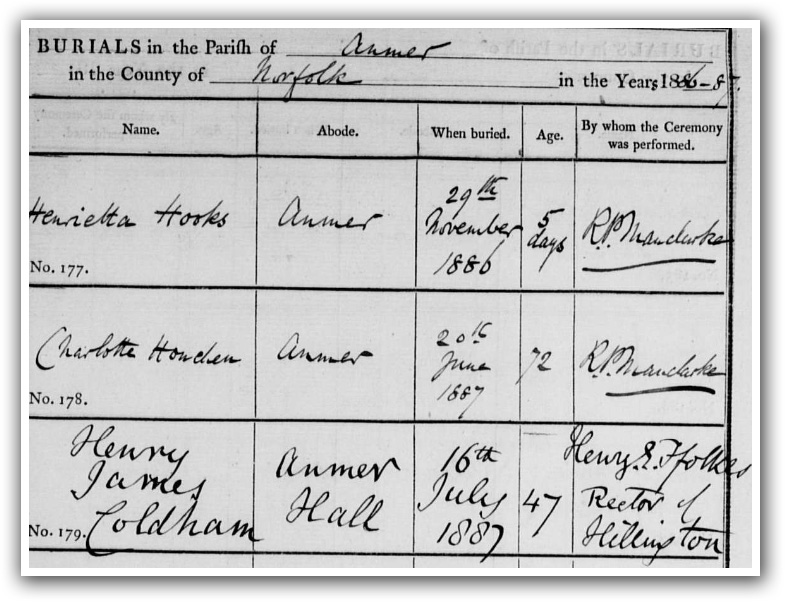 BURIALS in the Parish of Anmer
in the County of Norfolk in the Years 1886-87.
Name. Abode. When buried. Age. By whom the Ceremony was performed.
Henrietta Hooks Anmer 29th November 1886 5 days R.P. Manclarke
No. 177.
Charlotte Howden Anmer 20th June 1887 72 R.P. Manclarke
No. 178.
Henry James Coldham Anmer Hall 16th July 1887 47 Henry E. Ffolkes Rector of Hillington
No. 179.